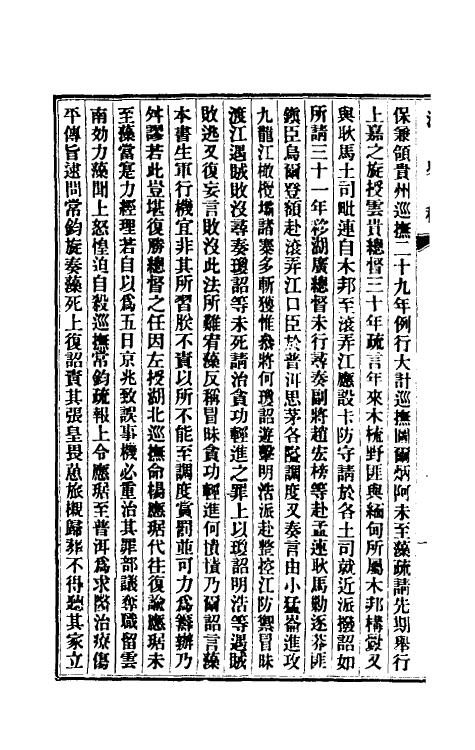 保兼領貴州巡撫二十九年例行大計巡撫圖爾炳阿未至藻疏請先期舉行
上嘉之旋授雲貴總督三十年疏言年來木梳野匪與緬甸所屬木邦構釁又
與耿馬土司毗連自木邦至滾弄江應設卡防守請於各土司就近派撥詔如
所請三十一年移湖廣總督未行尋奏副將趙宏榜等赴孟連耿馬勦逐莽匪
鎮臣烏爾登額赴滾弄江口臣於普洱思茅各隘調度又奏言由小猛崙進攻
九龍江橄欖壩諸寨多斬獲惟參將何瓊詔遊擊明浩派赴整控江防禦冒昧
渡江遇賊敗沒尋奏瓊詔等未死請治貪功輕進之罪上以瓊詔明浩等遇賊
敗逃又復妄言敗沒此法所難宥藻反稱冒昧貪功輕進何憒憒乃爾詔言藻
本書生軍行機宜非其所習朕不責以所不能至調度賞罰並可力為籌辦乃
舛謬若此豈堪復勝總督之任因左授湖北巡撫命楊應琚代往復諭應琚未
至藻當寔力經理若自以為五日京兆致誤事機必重治其罪部議奪職留雲
南効力藻聞上怒惶迫自殺巡撫常鈞疏報上令應琚至普洱為求醫治療傷
平傳旨逮問常鈞旋奏藻死上復詔責其張皇畏葸旅櫬歸葬不得聽其家立